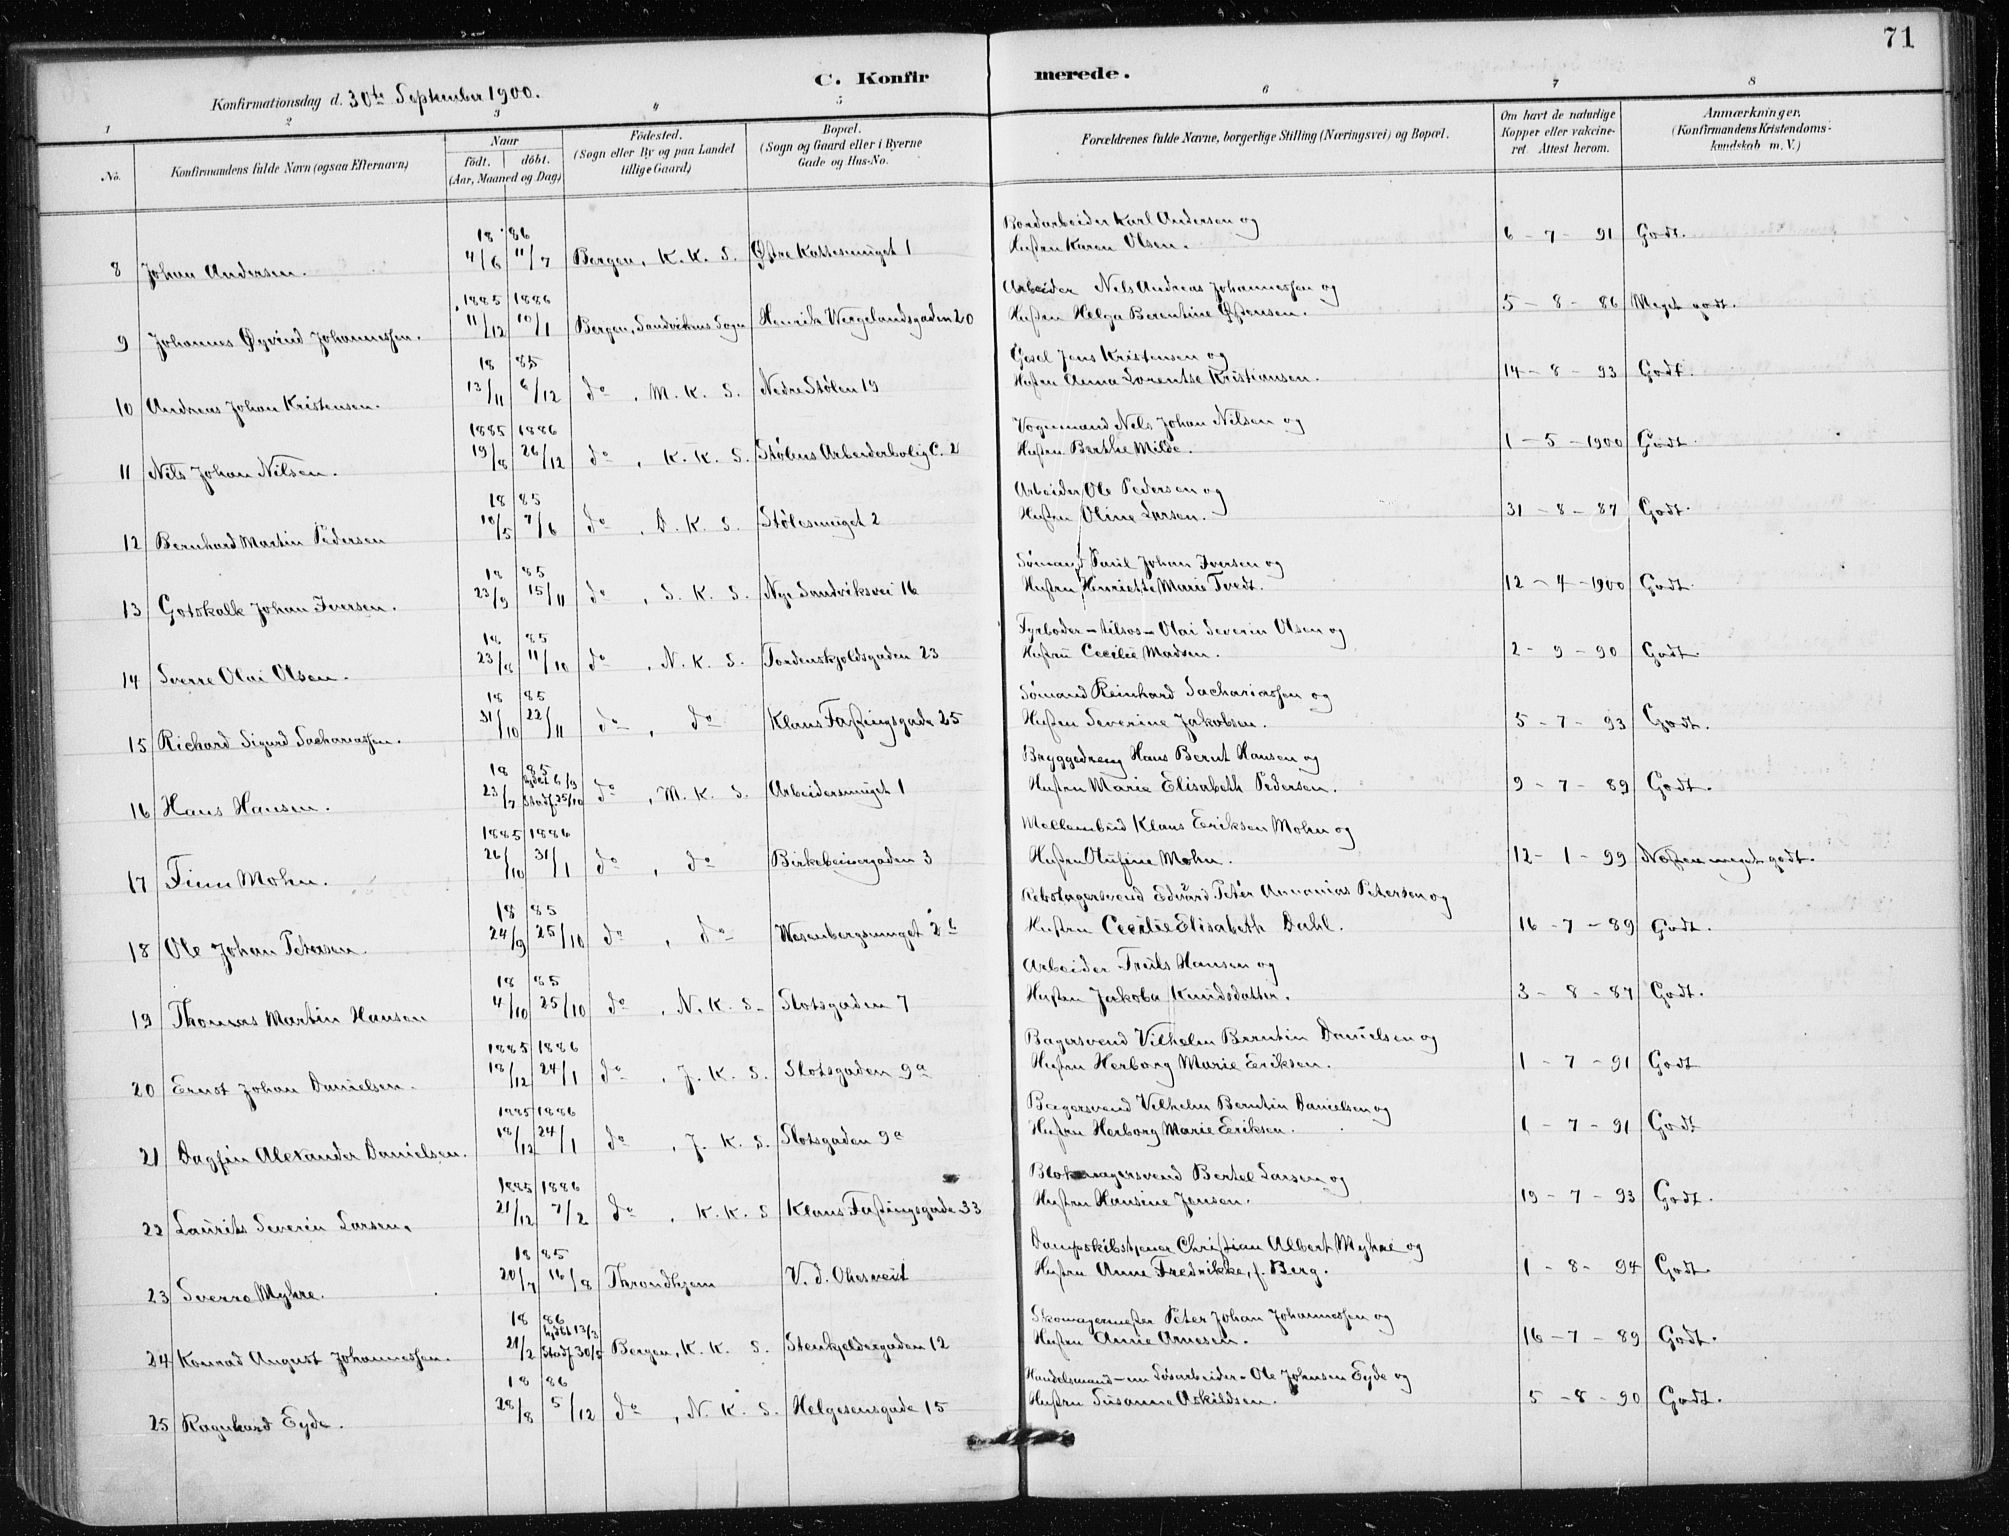 71
C. Konfirmerede.
Konfirmationsdag d. 30te September 1900.
1 2 3 4 5 6 7 8
No. Konfirmandens fulde Navn (ogsaa Efternavn) Naar födt. döbt. (Aar, Maaned og Dag) Födested. (Sogn eller By og paa Landet tillige Gaard) Bopæl. (Sogn og Gaard eller i Byerne Gade og Hus-No. Forældrenes fulde Navne, borgerlige Stilling (Næringsvei) og Bopæl. Om havt de naturlige Kopper eller vakcineret. Attest herom. Anmærkninger. (Konfirmandens Kristendomskundskab m. V.)
18 86 Bordarbeider Karl Andersen og
8 Johan Andersen. 4/6 11/7 Bergen, K. K. S. Østre Kattesmuget 1 Hustru Karen Olsen. 6 - 7 - 91 Godt.
1885 1886 Arbeider Nels Andreas Johannessen og
9 Johannes Øyvind Johannessen. 11/12 10/1 Bergen, Sandvikens Sogn Henrik Wergelandsgaden 20 Hustru Helga Berentine Østensen. 5 - 8 - 86 Meget godt.
18 85 Gesel Jens Kristensen og
10 Andreas Johan Kristensen. 13/11 6/12 do, M. K. S. Nedre Stølen 19 Hustru Anna Lorentse Kristiansen. 14 - 8 - 93 Godt.
1885 1886 Vognmand Nils Johan Nilsen og
11 Nils Johan Nilsen. 19/8 26/12 do, K. K. S. Stølens Arbeiderbolig C. 2 Hustru Berthe Milde. 1 - 5 - 1900 Godt.
18 85 Arbeider Ole Pedersen og
12 Bernhard Martin Pedersen 10/5 7/6 do, D. K. S. Stølesmuget 2 Hustru Oline Larsen. 31 - 8 - 87 Godt.
18 85 Sömand Paul Johan Iversen og
13 Gotskalk Johan Iversen. 23/9 15/11 do, S. K. S. Nye Sandviksvei 16 Hustru Henriette Marie Tvedt. 12 - 4 - 1900 Godt.
18 85 Fyrböder - tilsøs - Olai Severin Olsen og
14 Sverre Olai Olsen. 23/8 11/10 do, N. K. S. Tordenskjoldsgaden 23 Hustru Cecilie Madsen. 2 - 9 - 90 Godt.
18 85 Sömand Reinhard Sachariassen og
15 Richard Sigurd Sachariassen. 31/10 22/11 do, do Klaus Fastingsgade 25 Hustru Severine Jakobsen. 5 - 7 - 93 Godt.
18 85 Bryggedreng Hans Bernt Hansen og
16 Hans Hansen. 23/7 hjdbt 6/9 Stadf. 25/10 do, M. K. S. Arbeidersmuget 1 Hustru Marie Elisabeth Pedersen. 9 - 7 - 89 Godt.
1885 1886 Klaus Eriksen Mohn og
17 Finn Mohn. 26/10 31/1 do, do Birkebeinergaden 3 Hustru Olufine Mohn. 12 - 1 - 99 Næsten meget godt.
18 85 Rebslagersvend Edvard Peter Annanias Petersen og
18 Ole Johan Petersen. 24/9 25/10 do, do Wesenbergsmuget 2 b Hustru Cecilie Elisabeth Dahl. 16 - 7 - 89 Godt.
18 85 Arbeider Truls Hansen og
19 Thomas Martin Hansen 4/10 25/10 do, N. K. S. Slotsgaden 7 Hustru Jakoba Knudsdatter. 3 - 8 - 87 Godt.
1885 1886 Bagersvend Vilhelm Berntin Danielsen og
20 Ernst Johan Danielsen. 18/12 24/1 do, J. K. S. Slotsgaden 9a Hustru Herborg Marie Eriksen. 1 - 7 - 91 Godt
1885 1886 Bagersvend Vilhelm Berntin Danielsen og
21 Dagfin Alexander Danielsen. 18/12 24/1 do, J. K. S. Slotsgaden 9a Hustru Herborg Marie Eriksen. 1 - 7 - 91 Godt
1885 1886 Blokmagersvend Bertel Larsen og
22 Laurits Severin Larsen. 21/12 7/2 do, K. K. S Klaus Fastingsgade 33 Hustru Hansine Jensen. 19 - 7 - 93 Godt.
18 85 Dampskibstjener Christian Albert Myhre og
23 Sverre Myhre. 20/7 16/8 Throndhjem V. d. Ohesveit Hustru Anne Fredrikke, f. Berg. 1 - 8 - 94 Godt.
18 86 Skomagermester Peter Johan Johannessen og
24 Konrad August Johannessen. 21/2 hjdbt 13/3 Stadf 30/5 Bergen, K. K. S. Stenkjeldergaden 12 Hustru Anne Arnesen. 16 - 7 - 89 Godt.
18 86 Handelsmand - nu Løsarbeider - Ole Johnsen Eyde og
25 Ragnhard Eyde. 28/8 5/12 do, N. K. S. Helgesensgade 15 Hustru Susanne Askildsen. 5 - 8 - 90 Godt.